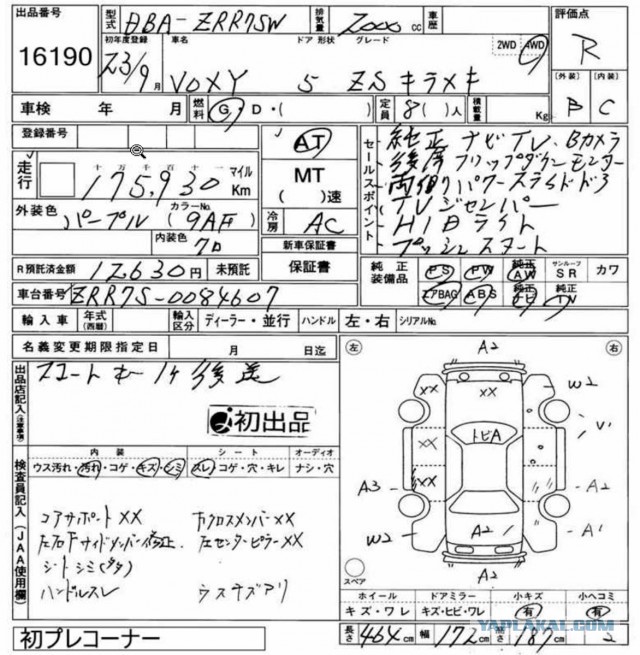 出品番号 16190
型式 DBA-ZRR75W 排気量 2000 cc 車歴
初年度登録 23/9月 車名 VOXY ドア 形状 5 グレード ZS キラメキ 2WD 4WD
評価点 R
外装 B 内装 C
車検 年 月 燃料 G・D・( ) 定員 8( )人 積載量 Kg
登録番号
走行 十万千百十一 175,930 マイル Km
AT
MT
( )速
冷房 AC
セールスポイント
純正 ナビTV、Bカメラ
後席フリップダウンモニター
両側パワースライドドア
TVジャンパー
HIDライト
プッシュスタート
外装色 パープル カラーNo. (9AF)
内装色 クロ
新車保証書
保証書
R預託済金額 12630円 未預託
純正装備品 PS PW 純正AW サンルーフ SR カワ
エアBAG ABS 純正ナビ 純正TV
車台番号 ZRR75-0084607
輸入車 年式(西暦) 輸入区分 ディーラー・並行 ハンドル 左・右 シリアルNo.
名義変更期限指定日 月 日迄
出品店記入(注意事項)
スマートキー1ヶ後送
初出品
内装 シート オーディオ
ウス汚れ・汚れ・コゲ・キズ・シミ スレ・コゲ・穴・キレ ナシ・穴
検査員記入(JAA使用欄)
コアサポートXX カクロスメンバーXX
左右Fサイドメンバー修正. 左センターピラーXX
シートシミ(多タ)
ハンドルスレ ウスキズアリ
左 A2 右
XX XX W2
トビA V1
XX
A3 XX A2
W2 A2 A1
A2
スペア
ホイール ドアミラー 小キズ 小ヘコミ
キズ・ワレ キズ・ヒビ・ワレ 有 有
初プレコーナー
長さ 464cm 幅 172cm 高さ 187cm 2
YAPLAKAL.COM